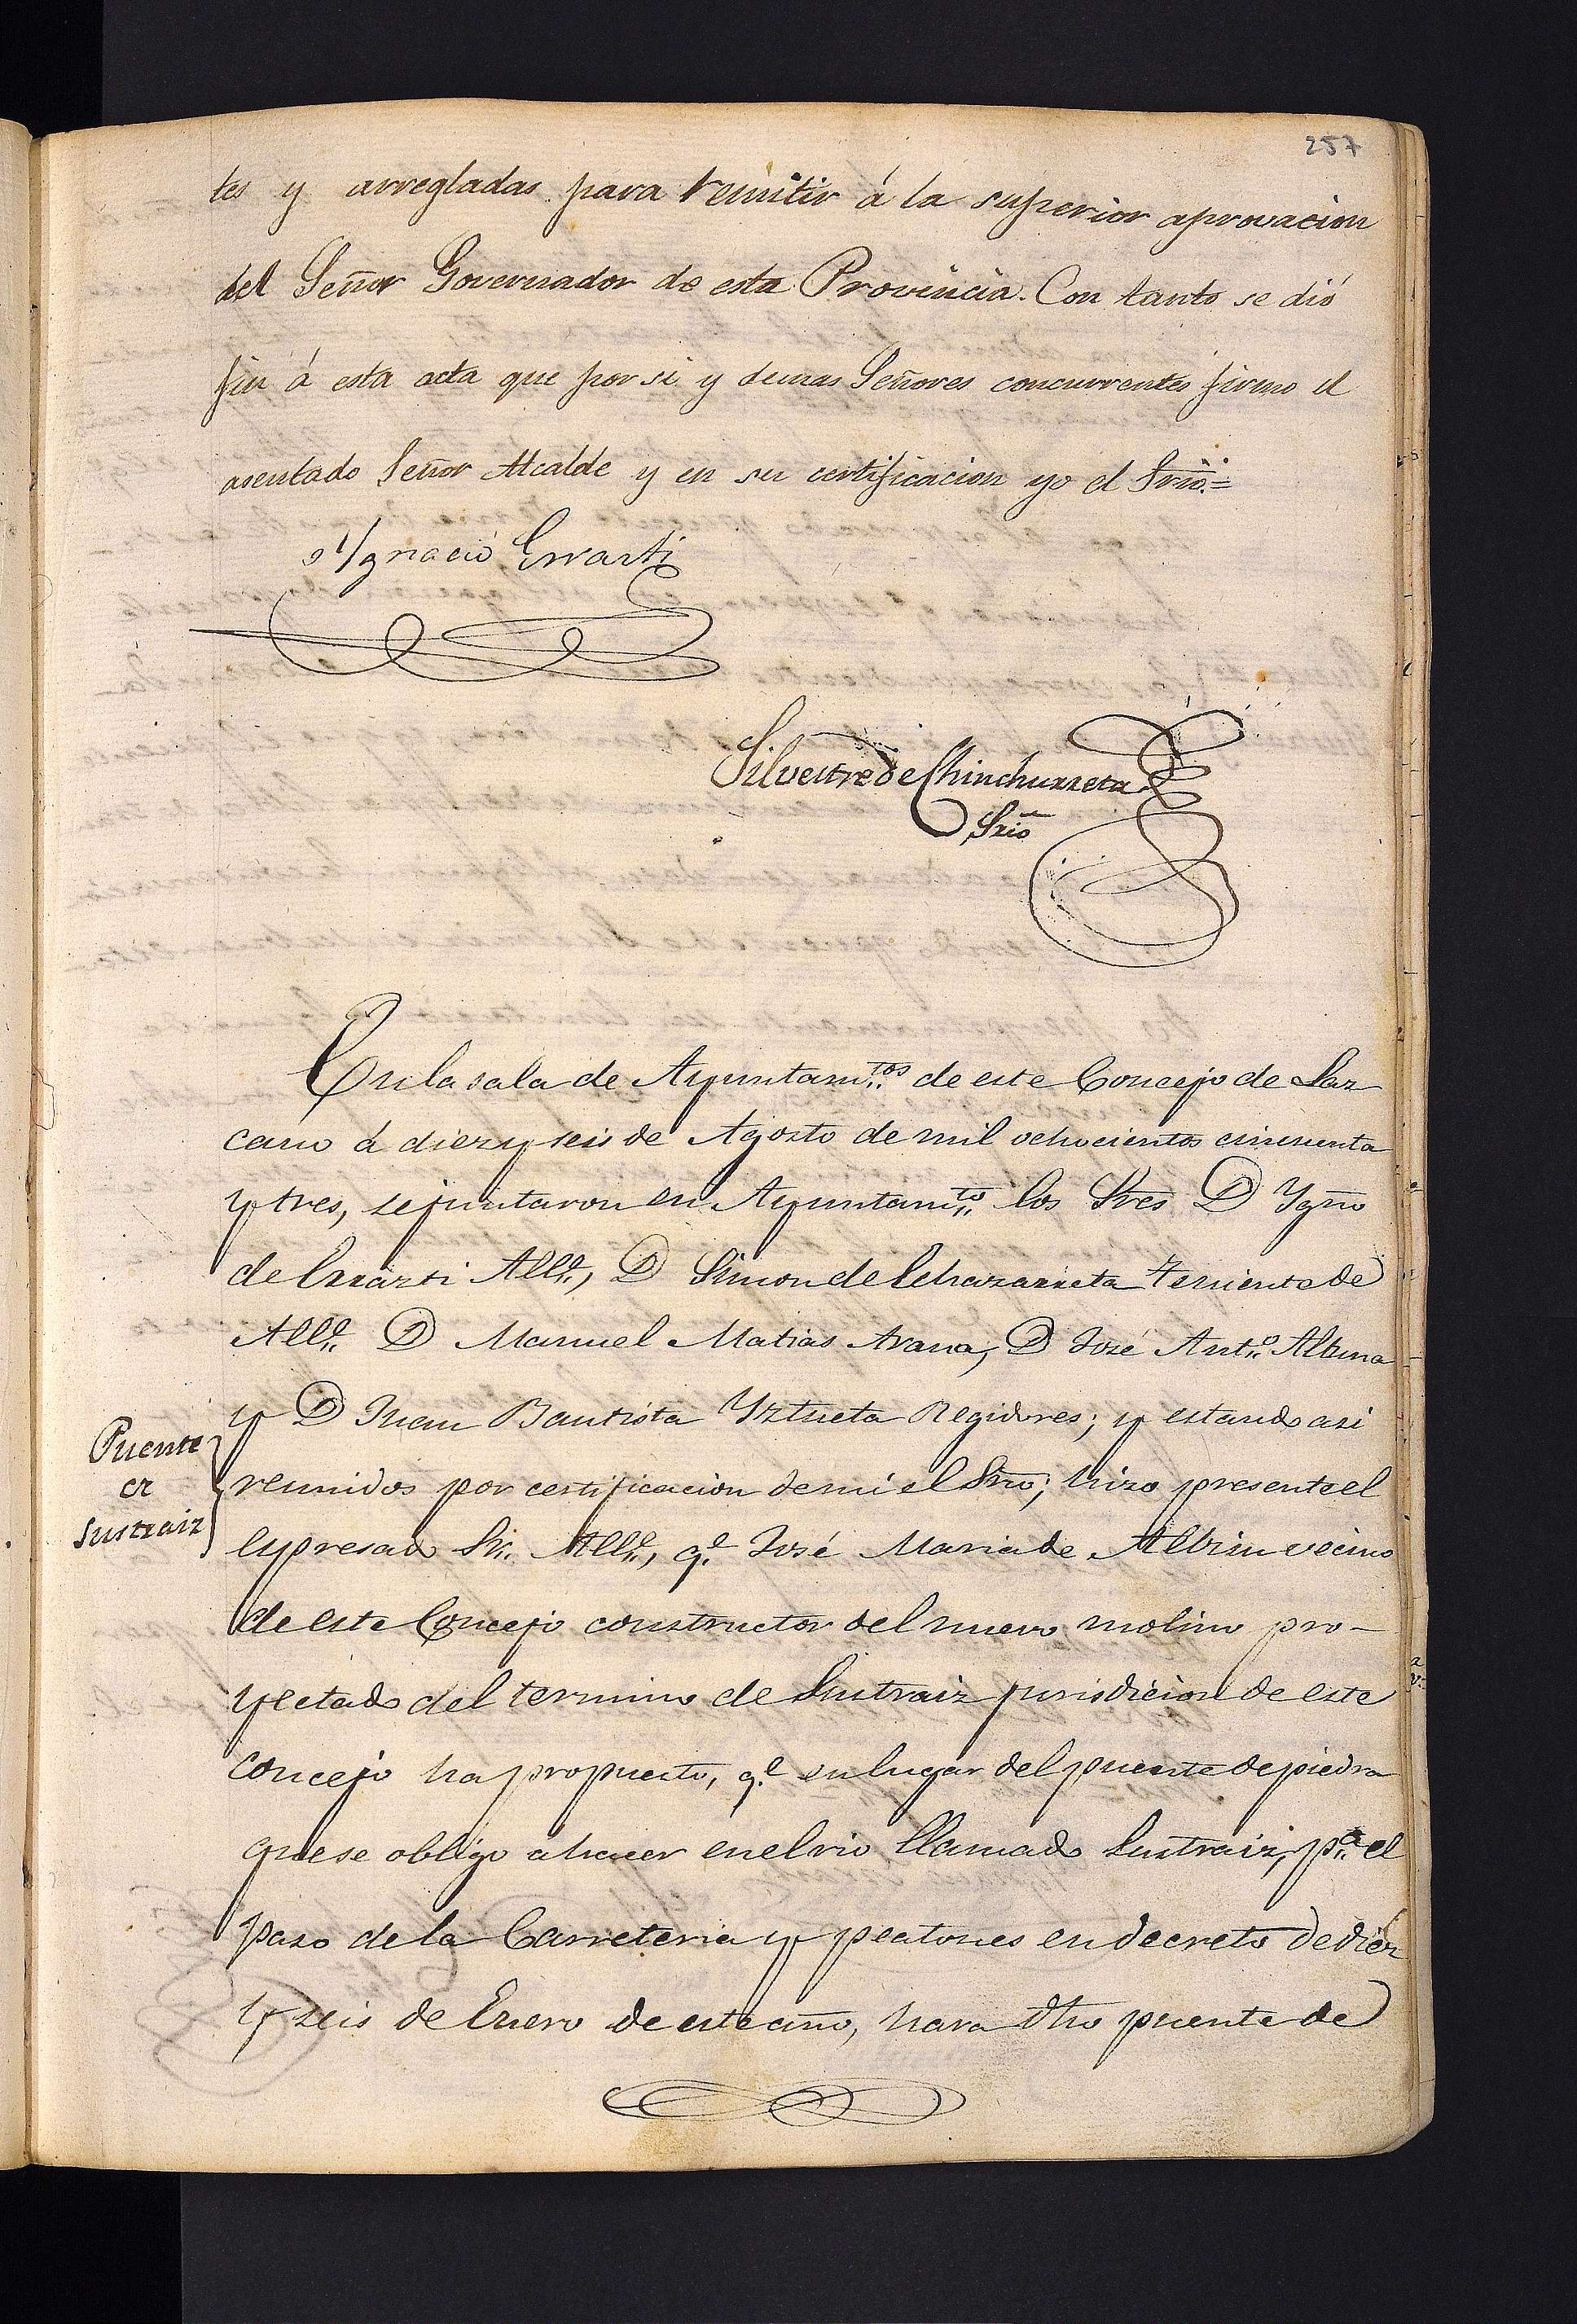 257
tes y arregladas para remitir á la superior aprovacion
del Señor Governador de esta Provincia. Con tanto se dió
fin á esta acta que por si y demas Señores concurrentes firmo el
asentado Señor Alcalde y en su certificacion yo el Srio.=
Ygnacio Errasti
Silvestre de Chinchurreta
Srio
En la sala de Ayuntam.tos de este Concejo de Laz
cano á diez y seis de Agosto de mil ochocientos cincuenta
y tres, se juntaron en Ayuntam.to los Sres D Ygno
de Errazti Alle., D Simon de Echazarreta Teniente de
Alle. D Manuel Matias Arana, D José Ant.o Albina
y D Juan Bautista Yztueta Regidores; y estando asi
Puente
er
Sustraiz
reunidos por certificacion de mi el Srio; hizo presente el
espresado Sr. Alle., q.e José Maria de Albisu vecino
de este Concejo constructor del nuevo molino pro-
yectado del termino de Sustraiz jurisdicion de este
concejo ha propuesto, q.e en lugar del puente de piedra
que se obligo a hacer en el rio llamado Sustraiz, p.a el
paso de la Carreteria y peatones en decreto de diez
y seis de Enero de este año, hara dho puente de